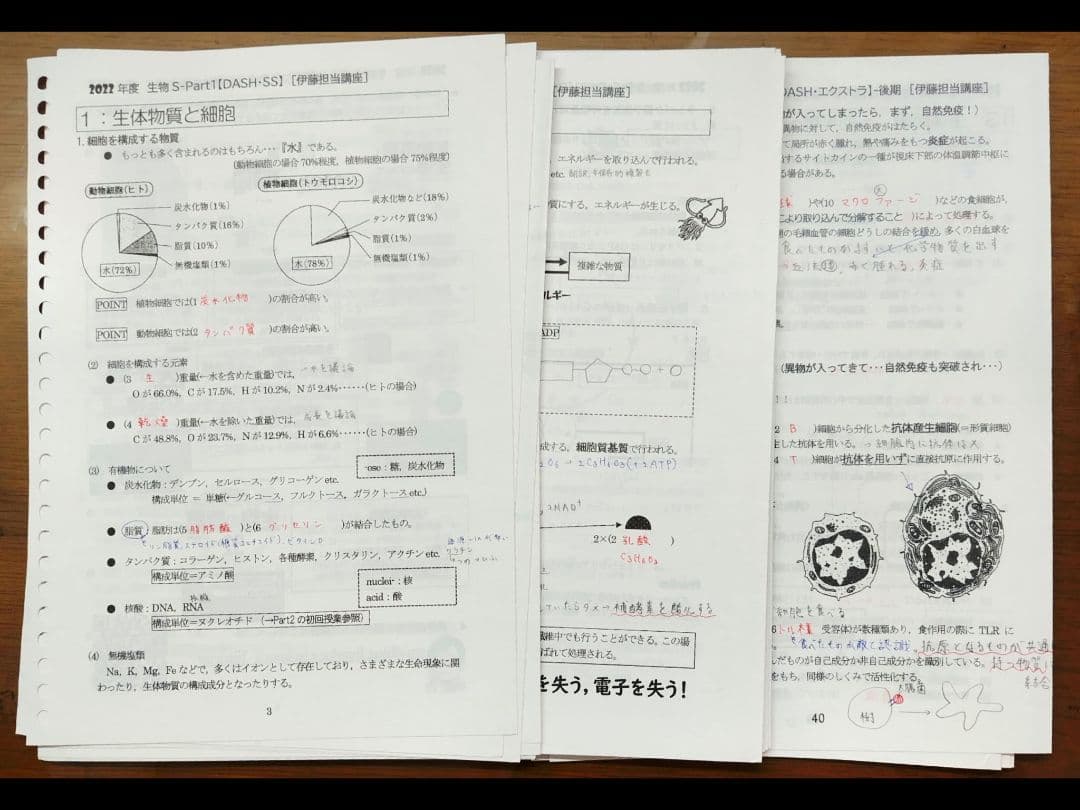 2022年度 生物 S-Part1【DASH・SS】［伊藤担当講座］
1：生体物質と細胞
1. 細胞を構成する物質
● もっとも多く含まれるのはもちろん…『水』である。
(動物細胞の場合 70%程度，植物細胞の場合 75%程度)
動物細胞(ヒト)
炭水化物(1%)
タンパク質(16%)
脂質(10%)
無機塩類(1%)
水(72%)
植物細胞(トウモロコシ)
炭水化物など(18%)
タンパク質(2%)
脂質(1%)
無機塩類(1%)
水(78%)
POINT 植物細胞では(1 炭水化物 )の割合が高い。
POINT 動物細胞では(2 タンパク質 )の割合が高い。
(2) 細胞を構成する元素
● (3 生 )重量(←水を含めた重量)では，
O が 66.0%，C が 17.5%，H が 10.2%，N が 2.4%……(ヒトの場合)
● (4 乾燥 )重量(←水を除いた重量)では，
C が 48.8%，O が 23.7%，N が 12.9%，H が 6.6%……(ヒトの場合)
(3) 有機物について
-ose：糖，炭水化物
● 炭水化物：デンプン，セルロース，グリコーゲン etc.
構成単位 ＝ 単糖(←グルコース，フルクトース，ガラクトース etc.)
● 脂質：脂肪は(5 脂肪酸 )と(6 グリセリン )が結合したもの。
● タンパク質：コラーゲン，ヒストン，各種酵素，クリスタリン，アクチン etc.
構成単位＝アミノ酸
nuclei-：核
acid：酸
● 核酸：DNA，RNA
構成単位＝ヌクレオチド （→Part2 の初回授業参照）
(4) 無機塩類
Na，K，Mg，Fe などで，多くはイオンとして存在しており，さまざまな生命現象に関
わったり，生体物質の構成成分となったりする。
3
［伊藤担当講座］
，エネルギーを取り込んで行われる。
etc.
質にする。エネルギーが生じる。
複雑な物質
ルギー
ADP
成する。細胞質基質で行われる。
2×(2 乳酸 )
C3H6O3
補酵素を酸化する
繊中でも行うことができる。この場
ばれて処理される。
を失う，電子を失う！
DASH・エクストラ】-後期 ［伊藤担当講座］
が入ってしまったら，まず，自然免疫！）
異物に対して，自然免疫がはたらく。
て局所が赤く腫れ，熱や痛みをもつ炎症が起こる。
するサイトカインの一種が視床下部の体温調節中枢に
る場合がある。
)や(10 マクロファージ )などの食細胞が，
により取り込んで分解すること )によって処理する。
の毛細血管の細胞どうしの結合を緩め，多くの白血球を
（異物が入ってきて…自然免疫も突破され…）
2 B )細胞から分化した抗体産生細胞(＝形質細胞)
生した抗体を用いる。
4 T )細胞が抗体を用いずに直接抗原に作用する。
細胞を食べる
受容体)が数種類あり，食作用の際に TLR に
んだものが自己成分か非自己成分かを識別している。
をもち，同様のしくみで活性化する。
樹
40